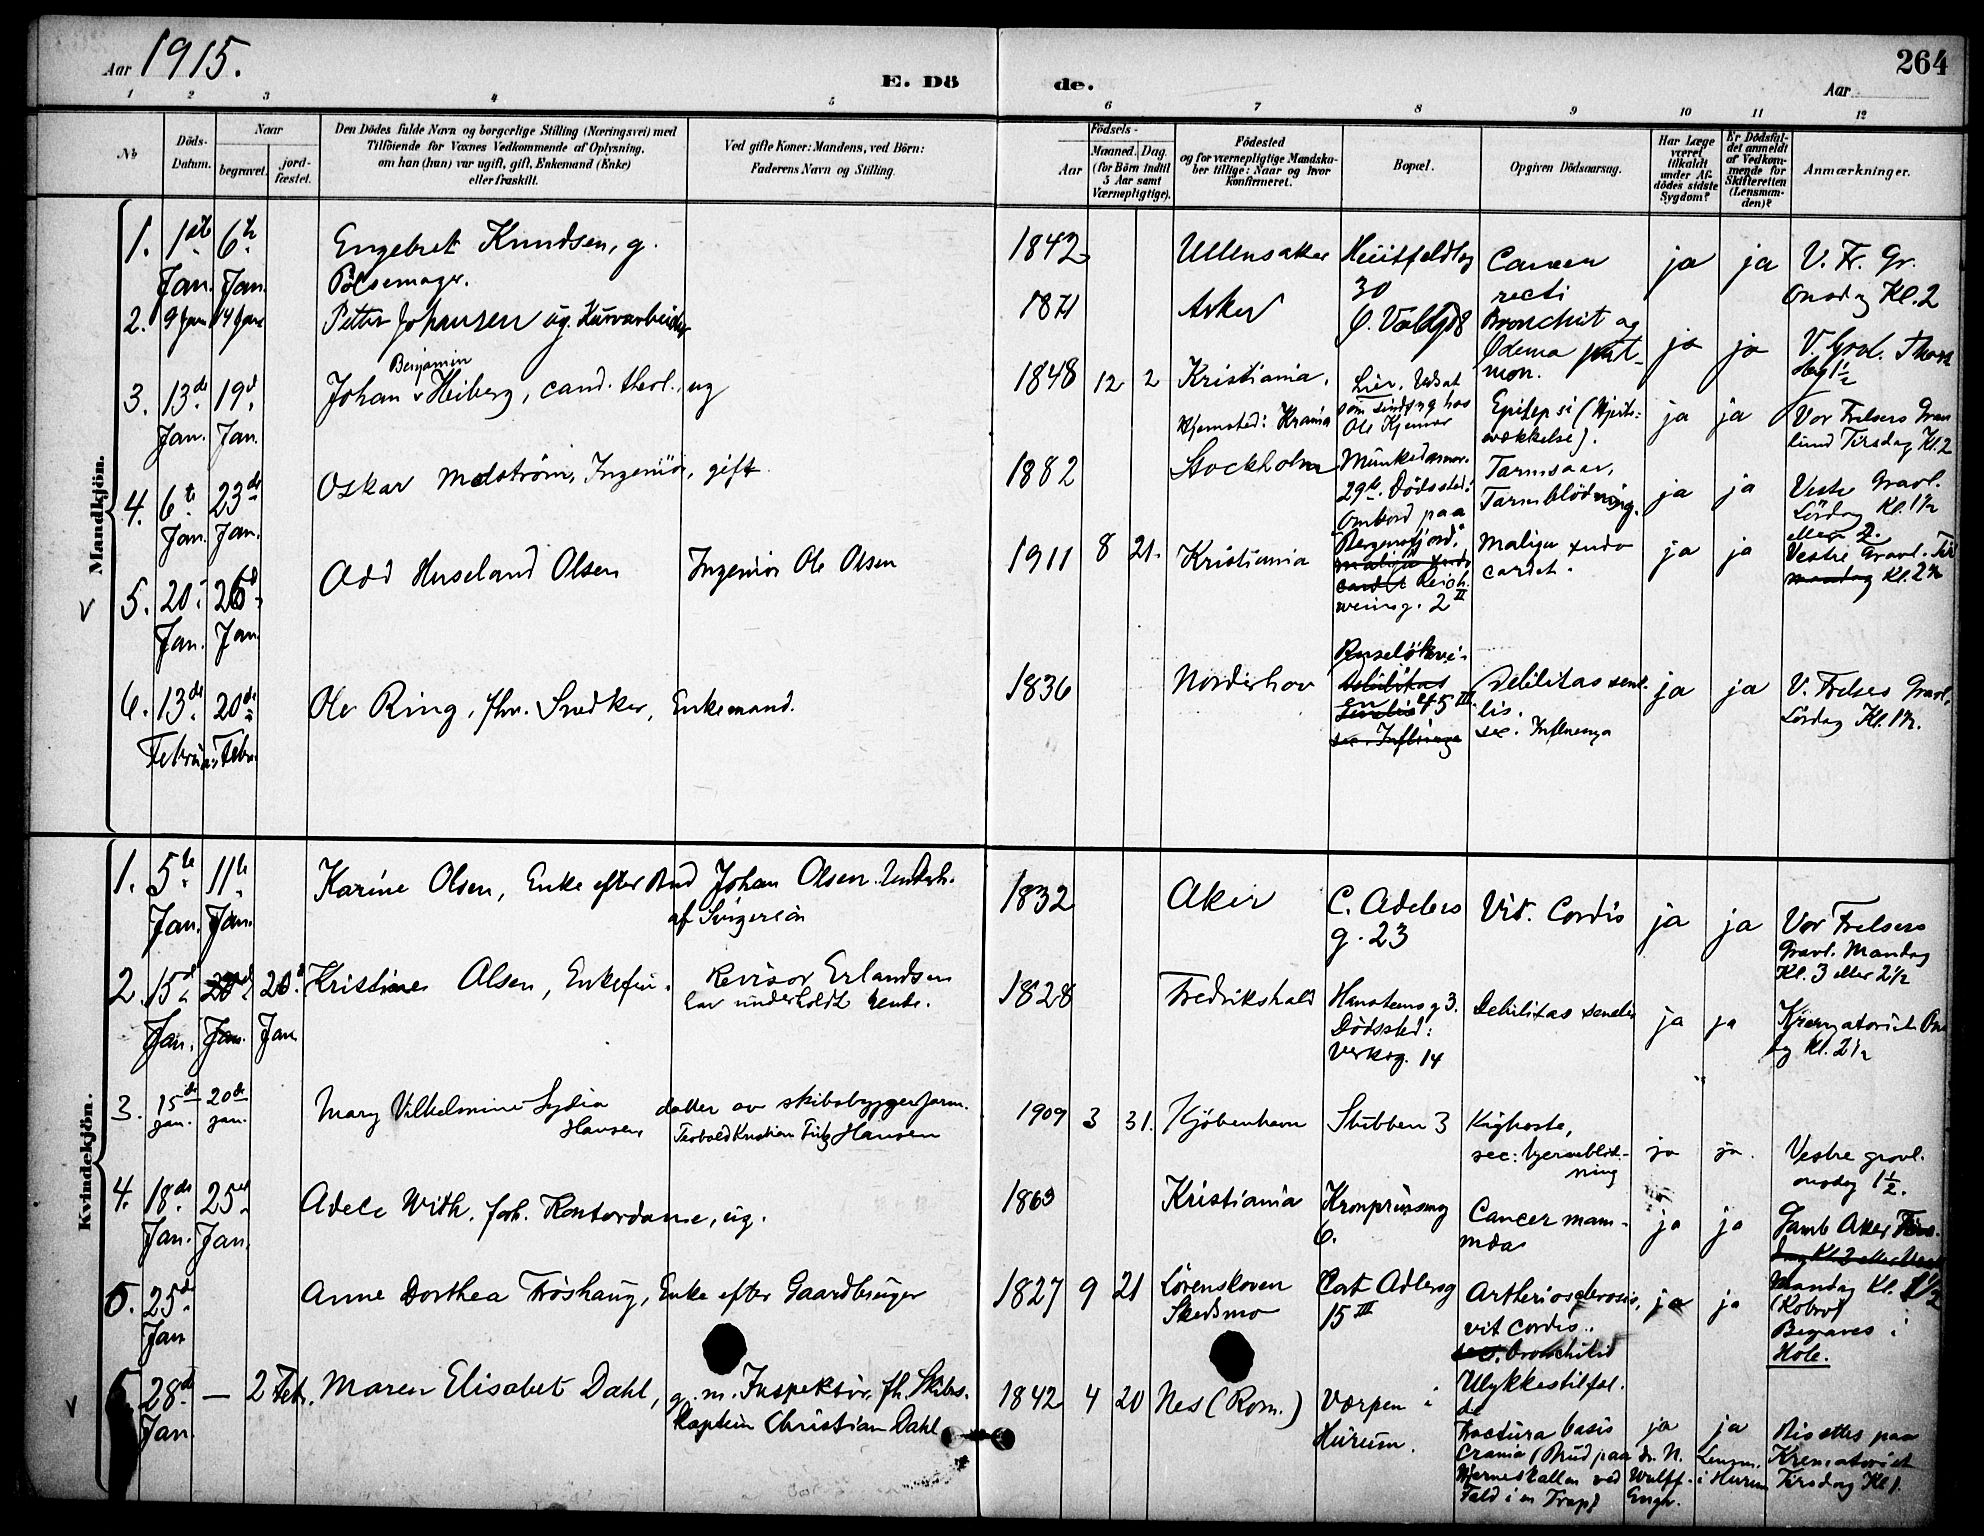 Aar 1915.
E. Döde.
Aar
264
1 2 3 4 5 6 7 8 9 10 11 12
No
Döds-
Datum.
Naar
begravet.
jord-
fæstet.
Den Dödes fulde Navn og borgerlige Stilling (Næringsvei) med
Tilföiende for Voxnes Vedkommende af Oplysning,
om han (hun) var ugift, gift, Enkemand (Enke)
eller fraskilt.
Ved gifte Koner: Mandens, ved Börn:
Faderens Navn og Stilling.
Födsels-
Aar
Maaned. Dag.
(for Börn indtil
5 Aar samt
Værnepligtige).
Födested
og for værnepligtige Mandska-
ber tillige: Naar og hvor
Konfirmeret.
Bopæl.
Opgiven Dödsaarsag.
Har Læge
været
tilkaldt
under Af-
dödes sidste
Sygdom?
Er Dödsfal-
det anmeldt
af Vedkom-
mende for
Skifteretten
(Lensman-
den)?
Anmærkninger.
Mandkjön.
1. 1ste Jan. 6te Jan.
Engebret Knudsen, g.
Pölsemager.
1842
Ullensaker
Huitfeldtsg
30
Cancer
recti
ja ja
V. Fr. Gr.
Onsdag Kl. 2
2. 9 Jan 14 Jan
Petter Johansen ug. Kurvarbeider
1871
Asker
Bronchit og
Ödema pul-
mon.
ja ja
V. Gravl.
3. 13de Jan. 19d Jan.
Benjamin
Johan Heiberg, cand. theol., ug
1848 12 2
Kristiania.
Hjemsted: Krania
Lier,
som Sindsyg hos
Ole
Epilepsi (Hjerte-
svækkelse).
ja ja
Vor Frelsers Grav
lund Tirsdag Kl. 2
4. 6te Jan. 23de Jan.
Oskar Modström, Ingeniör, gift
1882
Stockholm
Munkedamsv.
29b. Dödssted:
Ombord paa
"Bergensfjord"
Tarmsaar,
Tarmblödning.
ja ja
Vestre Gravl.
Lördag Kl. 1½
eller 2.
5. 20de Jan. 26d Jan.
Odd Huseland Olsen
Ingeniör Ole Olsen
1911 8 21.
Kristiania
Reich-
weinsg. 2 II
Malign endo
cardit.
ja ja
Vestre Gravl. Tir
mandag Kl. 2½
6. 13de Februar 20de Febr.
Ole Ring, fhv. Snedker, Enkemand.
1836
Norderhov
Ruselökvei-
en 45 III.
Debilitas seni-
lis.
sec. Influenza
ja ja
V. Frelsers Gravl.
Lördag Kl. 1½.
Kvindekjön.
1. 5te Jan. 11te Jan.
Karine Olsen, Enke efter Bud Johan Olsen. Underh.
af Svigersön
1832
Aker
C. Adelers
g. 23
Vit. Cordis
ja ja
Vor Frelsers
Gravl. Mandag
Kl. 3 eller 2½
2. 15d Jan. 20d Jan. 20d Jan
Kristiane Olsen, Enkefru.
Revisor Erlandsen
har underholdt hende.
1828
Fredrikshald
Hanstensg 3.
Dödssted:
Verksg. 14
Debilitas senilis
ja ja
Krematoriet Ons
dg Kl. 2½
3. 15de jan. 20de jan.
Mary Vilhelmine Lydia
Hansen
datter av skibsbyggerform.
Teobald Kristian Fritz Hansen
1909 3 31.
Kjöbenhavn
Stubben 3
Kighoste,
sec: hjerneblöd-
ning
ja ja.
Vestre gravl.
onsdag 1½.
4. 18de Jan. 25de Jan.
Adele With, forh. Kontordame, ug.
1863
Kristiania
Kronprinsensg
6.
Cancer mam-
mae
ja ja
Gamle Aker Tirs-
Mandag Kl. 1½
5. 25d Jan
Anne Dorthea Fröshaug, Enke efter Gaardbruger
1827 9 21
Lörenskoven
Skedsmo
Cort Adlersg
15 III
Artheriosclerosis,
vit. cordis.
sec. bronchitis
ja ja
Begraves i
Hole.
6. 28de Jan — 2 Feb.
Maren Elisabet Dahl,
g. m. Inspektör, fh. Skibs-
kaptein Christian Dahl
1842 4 20
Nes (Rom.)
Værpen i
Hurum.
Ulykkestilfæl-
de
Fractura basis
crania (Brud paa
Hjerneskallen ved
Fald i en Trap)
ja
dr. N.
Wulff-
Engh.
ja
Lensm.
i Hurum
Bisættes paa
Krematoriet
Tirsdag Kl 1.